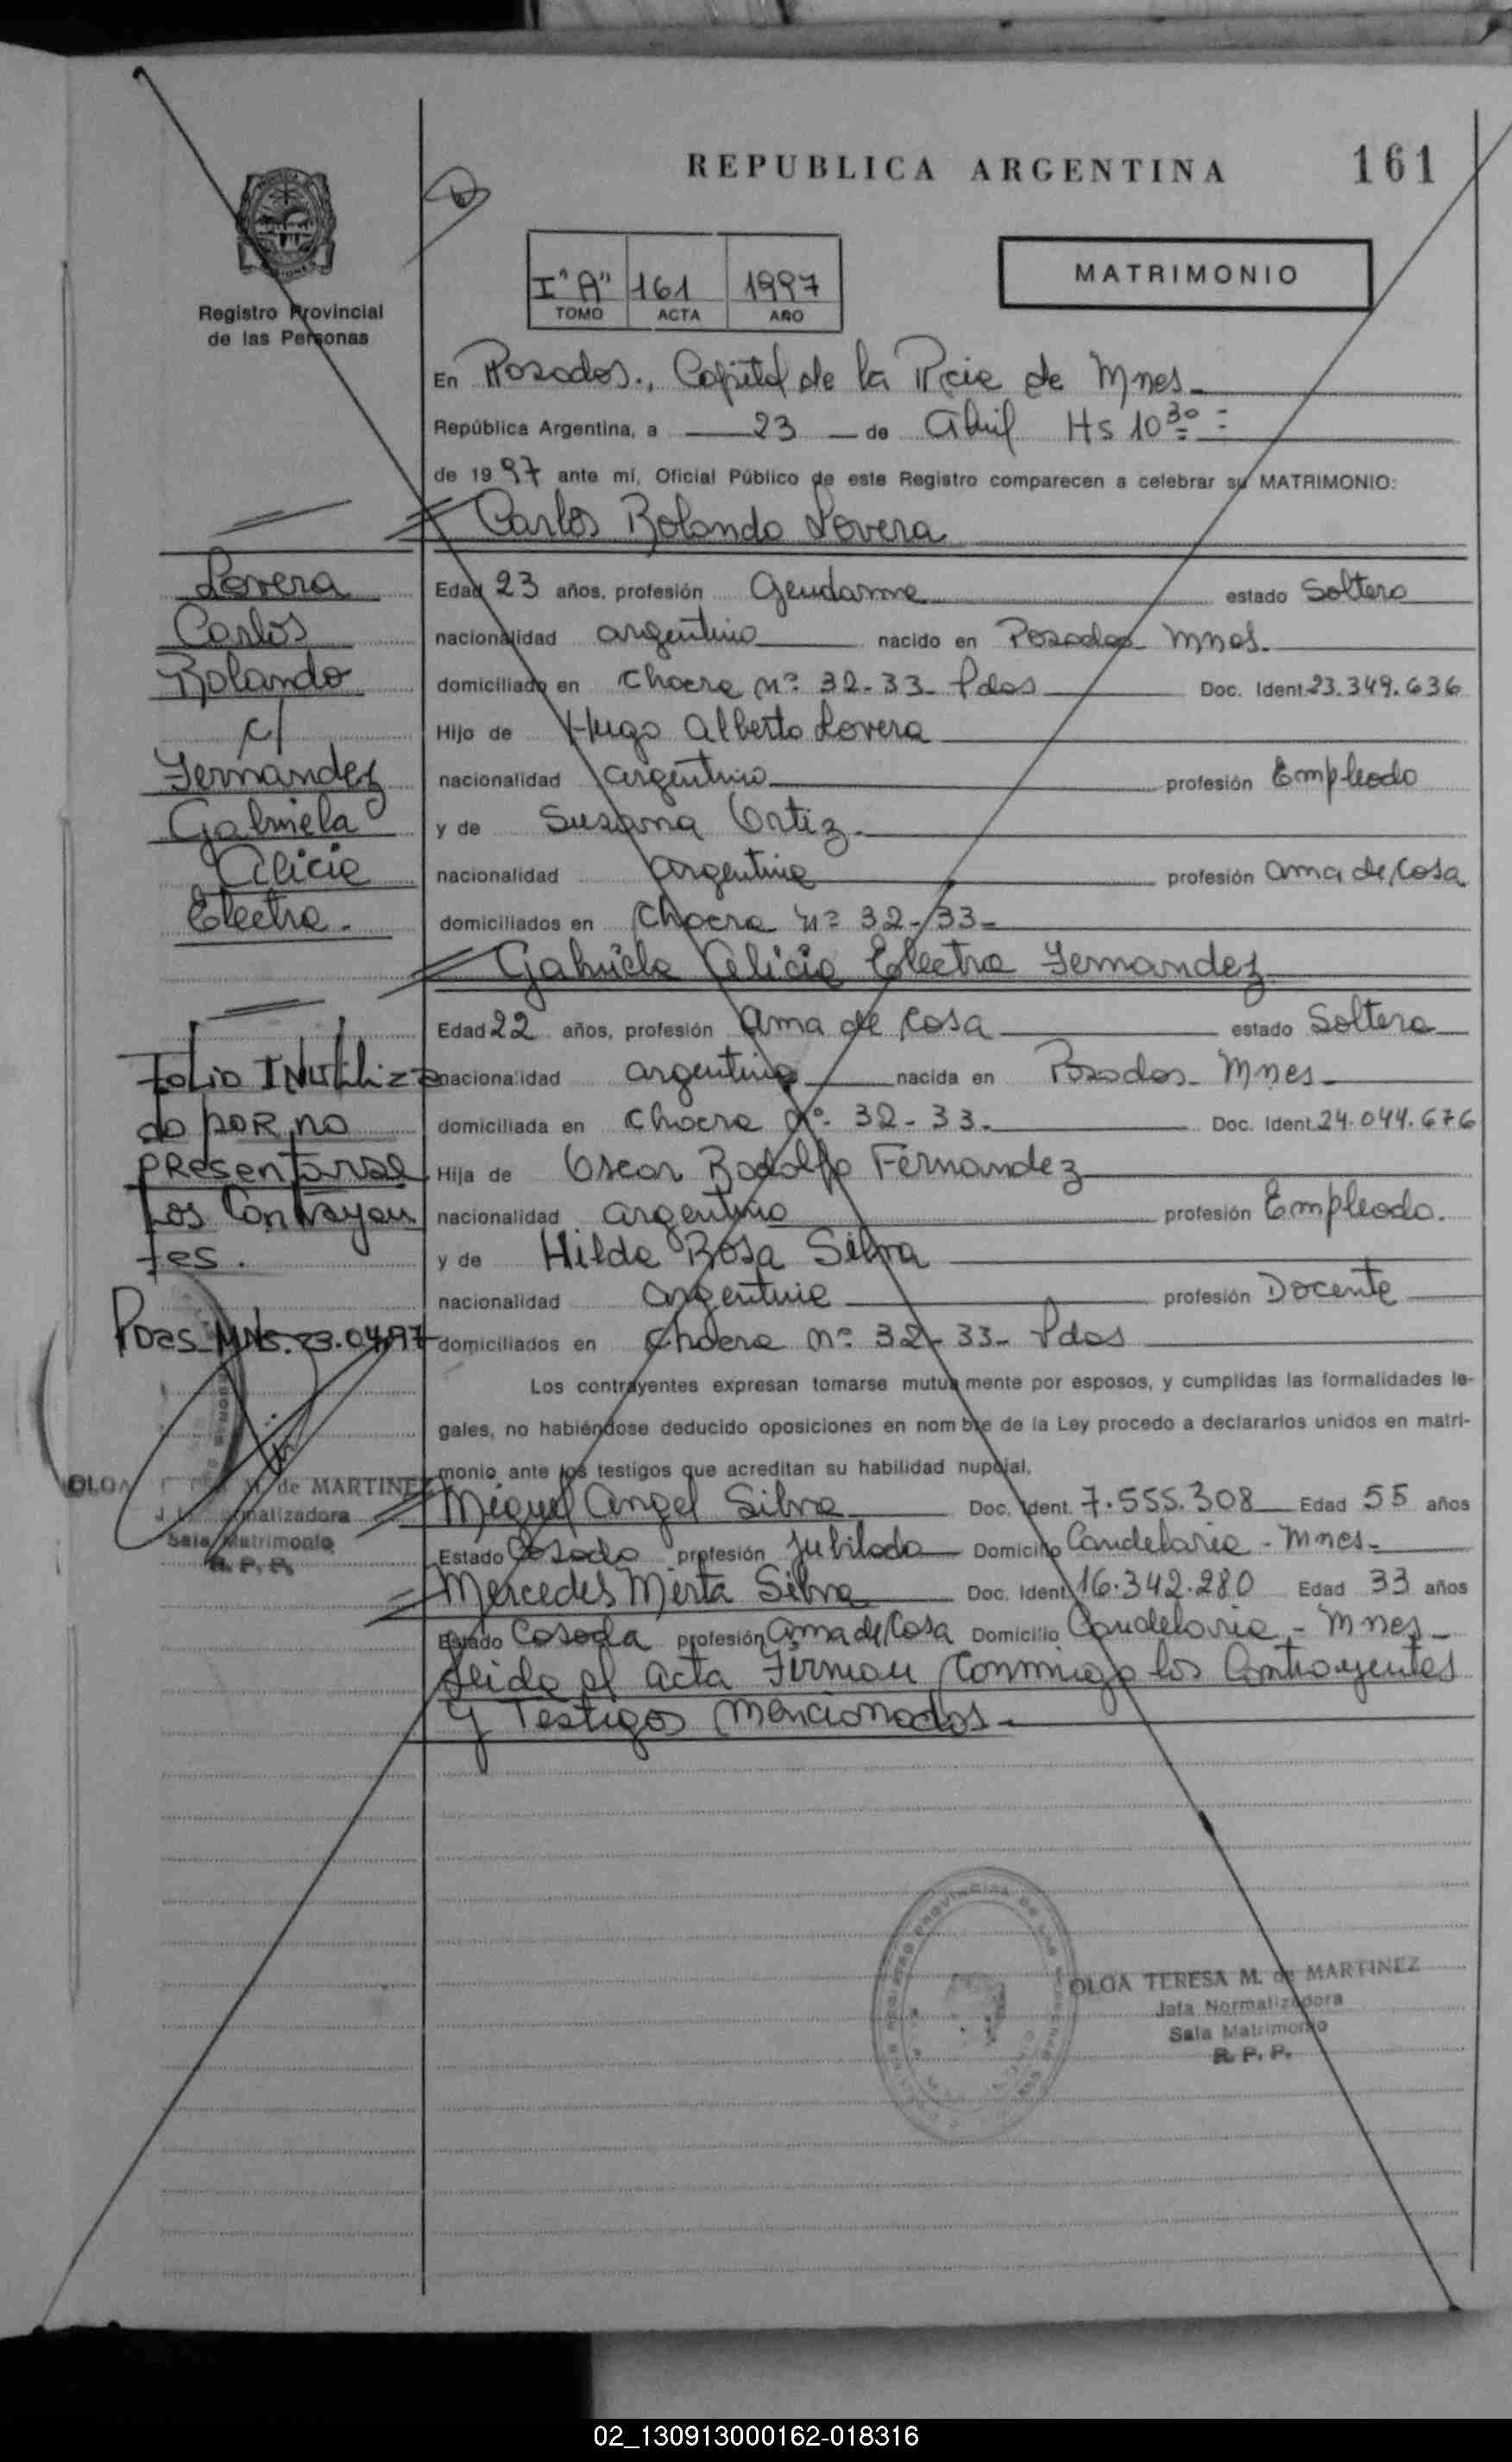 REPUBLICA ARGENTINA
161
Registro Provincial
de las Personas
I° "A" 161 1997
TOMO ACTA AÑO
MATRIMONIO
En Posadas., Capital de la Pcia de Mnes
República Argentina, a 23 de Abril Hs 10 30
de 1997 ante mí, Oficial Público de este Registro comparecen a celebrar su MATRIMONIO:
Carlos Rolando Lovera
Lovera
Carlos
Rolando
c/
Fernandez
Gabriela
Alicia
Electra.
Edad 23 años, profesión Gendarme estado Soltero
nacionalidad argentino nacido en Posadas Mnes.
domiciliado en Chacra Nº 32-33 Pdas Doc. Ident. 23.349.636
Hijo de Hugo Alberto Lovera
nacionalidad argentino profesión Empleado
y de Susana Ortiz
nacionalidad Argentina profesión ama de Casa
domiciliados en Chacra Nº 32-33
Gabriela Alicia Electra Fernandez
Edad 22 años, profesión Ama de Casa estado Soltera
nacionalidad argentina nacida en Posadas Mnes
domiciliada en Chacra Nº 32-33. Doc. Ident. 24.044.676
Hija de Oscar Rodolfo Fernandez
nacionalidad argentino profesión Empleado.
y de Hilda Rosa Silva
nacionalidad argentina profesión Docente
domiciliados en Chacra nº 32-33 Pdas
Folio INutiliza
do poR no
PResentarse
Los Contrayen
tes.
Pdas Mns. 23.04.97
Los contrayentes expresan tomarse mutua mente por esposos, y cumplidas las formalidades le-
gales, no habiéndose deducido oposiciones en nom bre de la Ley procedo a declararlos unidos en matri-
monio ante los testigos que acreditan su habilidad nupcial.
Miguel Angel Silva Doc. Ident. 7.555.308 Edad 55 años
Estado Casado profesión Jubilado Domicilio Candelaria - Mnes
Mercedes Mirta Silva Doc. Ident. 16.342.280 Edad 33 años
Estado Casada profesión Ama de Casa Domicilio Candelaria - Mnes
Leida el acta Firman Conmigo los Contrayentes
y Testigos mencionados
OLGA M. de MARTINEZ
Normalizadora
Sala Matrimonio
R. P. P.
OLGA TERESA M. de MARTINEZ
Jefa Normalizadora
Sala Matrimonio
R. P. P.
02_130913000162-018316